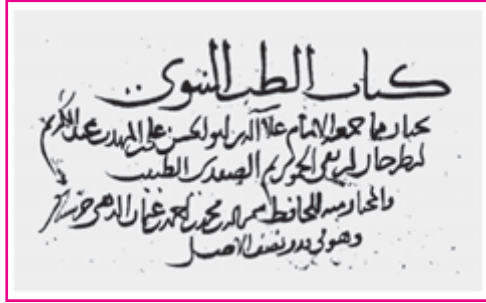 كتاب الطب النبوي
مختار مما جمعه الامام علا الدين ابو الحسن على بن المهذب عبد الكريم
ابن طرخان بن تقي الحموي ثم الصفدي الطبيب
والمختار منه للحافظ شمس الدين محمد بن احمد بن عثمان الذهبي
وهو في قدر نصف الاصل